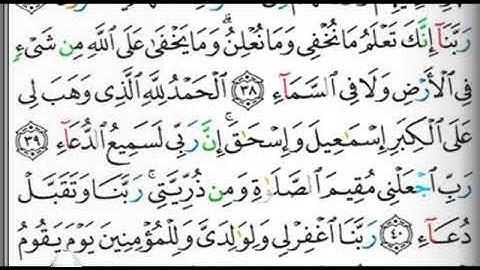 رَبَّنَآ إِنَّكَ تَعْلَمُ مَا نُخْفِى وَمَا نُعْلِنُ ۗ وَمَا يَخْفَىٰ عَلَى ٱللَّهِ مِن شَىْءٍ
فِى ٱلْأَرْضِ وَلَا فِى ٱلسَّمَآءِ ٣٨ ٱلْحَمْدُ لِلَّهِ ٱلَّذِى وَهَبَ لِى
عَلَى ٱلْكِبَرِ إِسْمَـٰعِيلَ وَإِسْحَـٰقَ ۚ إِنَّ رَبِّى لَسَمِيعُ ٱلدُّعَآءِ ٣٩
رَبِّ ٱجْعَلْنِى مُقِيمَ ٱلصَّلَوٰةِ وَمِن ذُرِّيَّتِى ۚ رَبَّنَا وَتَقَبَّلْ
دُعَآءِ ٤٠ رَبَّنَا ٱغْفِرْ لِى وَلِوَٰلِدَىَّ وَلِلْمُؤْمِنِينَ يَوْمَ يَقُومُ